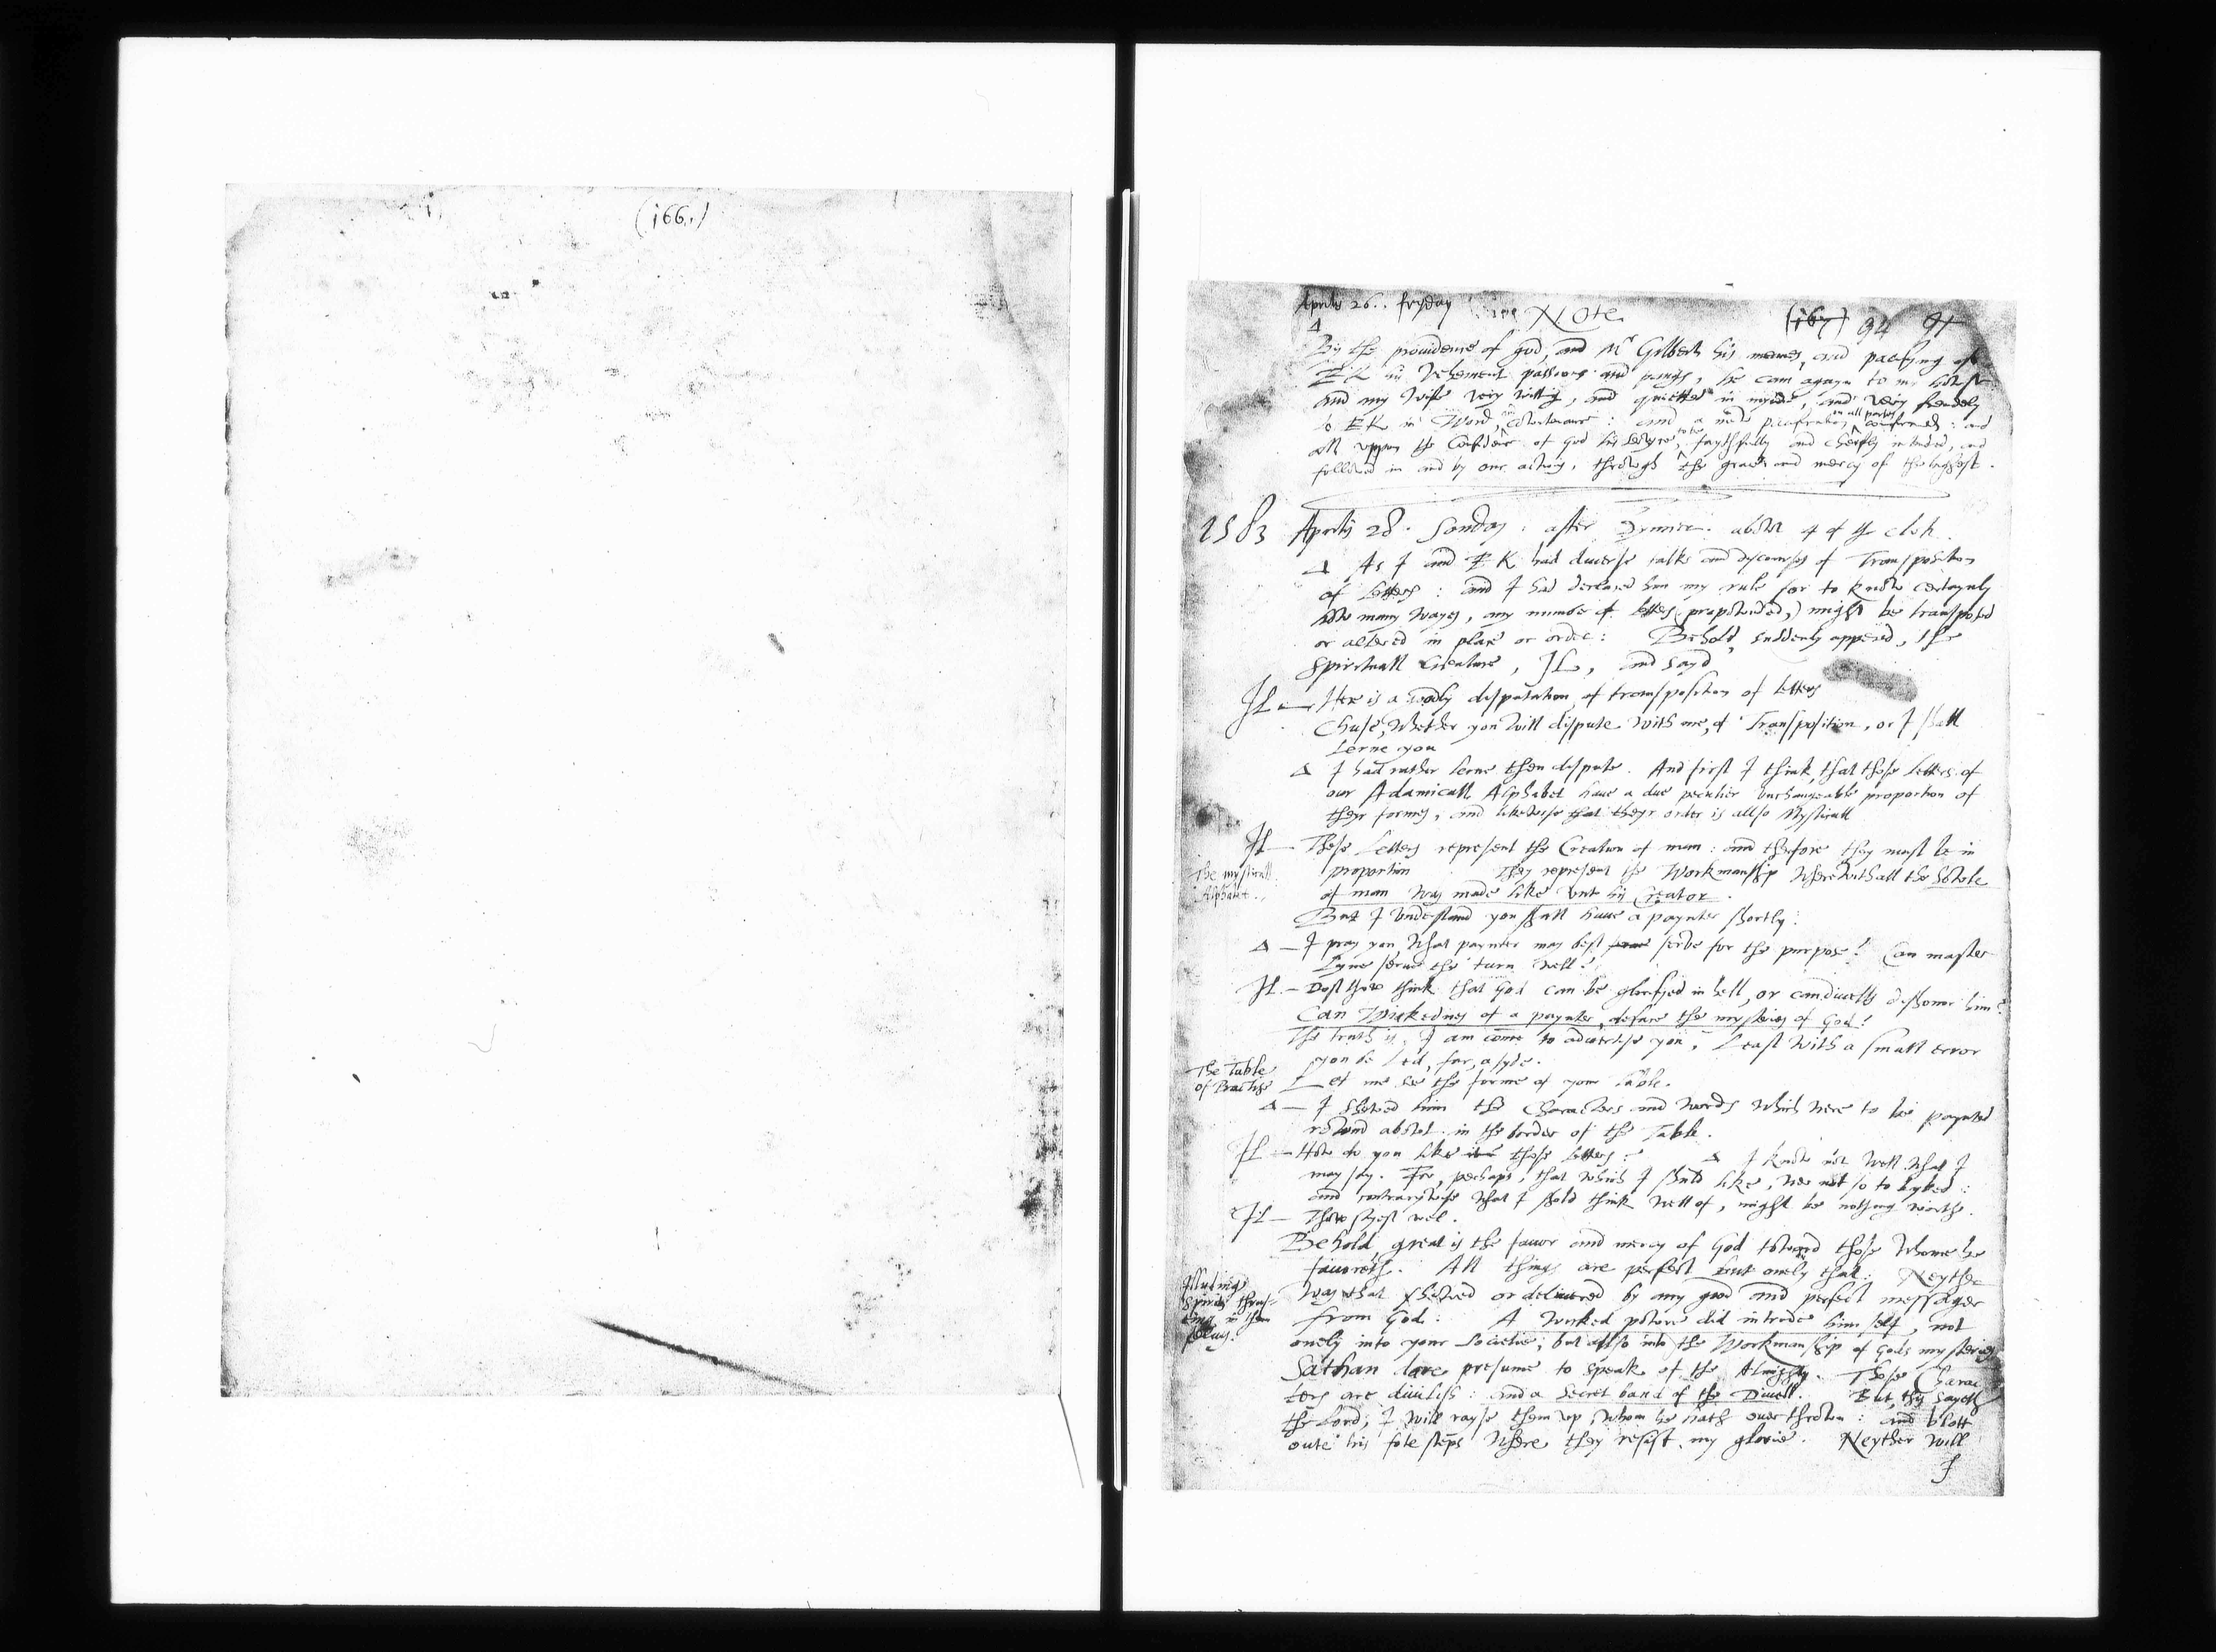 (166.)
Aprilis 26.. fryday Note (167) 94
Δ
By the prouidence of god, and Mr Gilberts his meanes, and pacifying of
EK his Vehement passions and pangs, he cam agayn to my howse
and my wife very willing, and quietted in mynde, and very frendely
to EK in Word, and countenance : and a new pacification on all partes confirmed : and
all vppon the Confidence of God his seruyce, to be faythfully and cherefully intended, and
followed in and by our actions, through the grace and mercy of the highest.
1583 Aprilis 28. Sonday : after Dynner. abowt 4 of ye clok.
Δ As I and EK had diuerse talks and discourses of Transposition
of letters : and I had declared him my rule for to know certaynly
how many wayes, any number of letters (propownded,) might be transposed
or altered in place or order : Behold, suddenly appered, the
Spirituall Creature, Il, and sayd,
Il — Here is a goodly disputation of transposition of letters
Chuse, whether you will dispute with me, of Transposition, or I shall
lerne you
Δ I had rather lerne then dispute. And first I think, that those letters of
our Adamicall Alphabet haue a due peculier vnchangeable proportion of
theyr formes, and likewise that theyr order is allso Mysticall
Il — These Letters represent the Creation of man : and therfore they must be in
The mysticall
Alphabet.
proportion They represent the Workmanship wherewithall the sowle
of man was made like vnto his Creator.
But I vnderstand you shall haue a paynter shortly :
Δ — I pray you What paynter may best serue serve for the purpose? Can master
Lyne serue the turn well?
Il. — Dost thow think that God can be glorifyed in hell, or can diuells dishonor him?
Can Wickednes of a paynter, deface the mysteries of God?
The truth is, I am come to aduertise you, Least with a small error
you be Led, far, a syde.
The Table
of Practise
Let me see the forme of your Table.
Δ — I shewed him the Characters and words which were to be paynted
rownd abowt in the border of the Table.
Il — How do you like those letters? Δ I know not well what I
may say. For, perhaps, that which I shuld like, wer not so to be lyked :
and contrarywise what I shold think well of, might be nothing worth.
Il — Thow sayest wel.
Behold, great is the fauor and mercy of God toward those whome he
fauoreth. All things are perfect but onely that : Neyther
Illuding
Spirits thrus-
ting in them
selues.
was that shewed or deliuered by any good and perfect messager
from God : A wicked powre did intrude him self, not
onely into your Societie, but allso into the Workmanship of Gods mysteries
Sathan dare presume to speak of the Almighty. Those Charac
ters are diuilish : and a secret band of the Diuell. But, this sayeth
the Lord, I will rayse them vp, whom he hath ouerthrown : and blott
oute his fotesteps where they resist my glorie. Neyther will
I